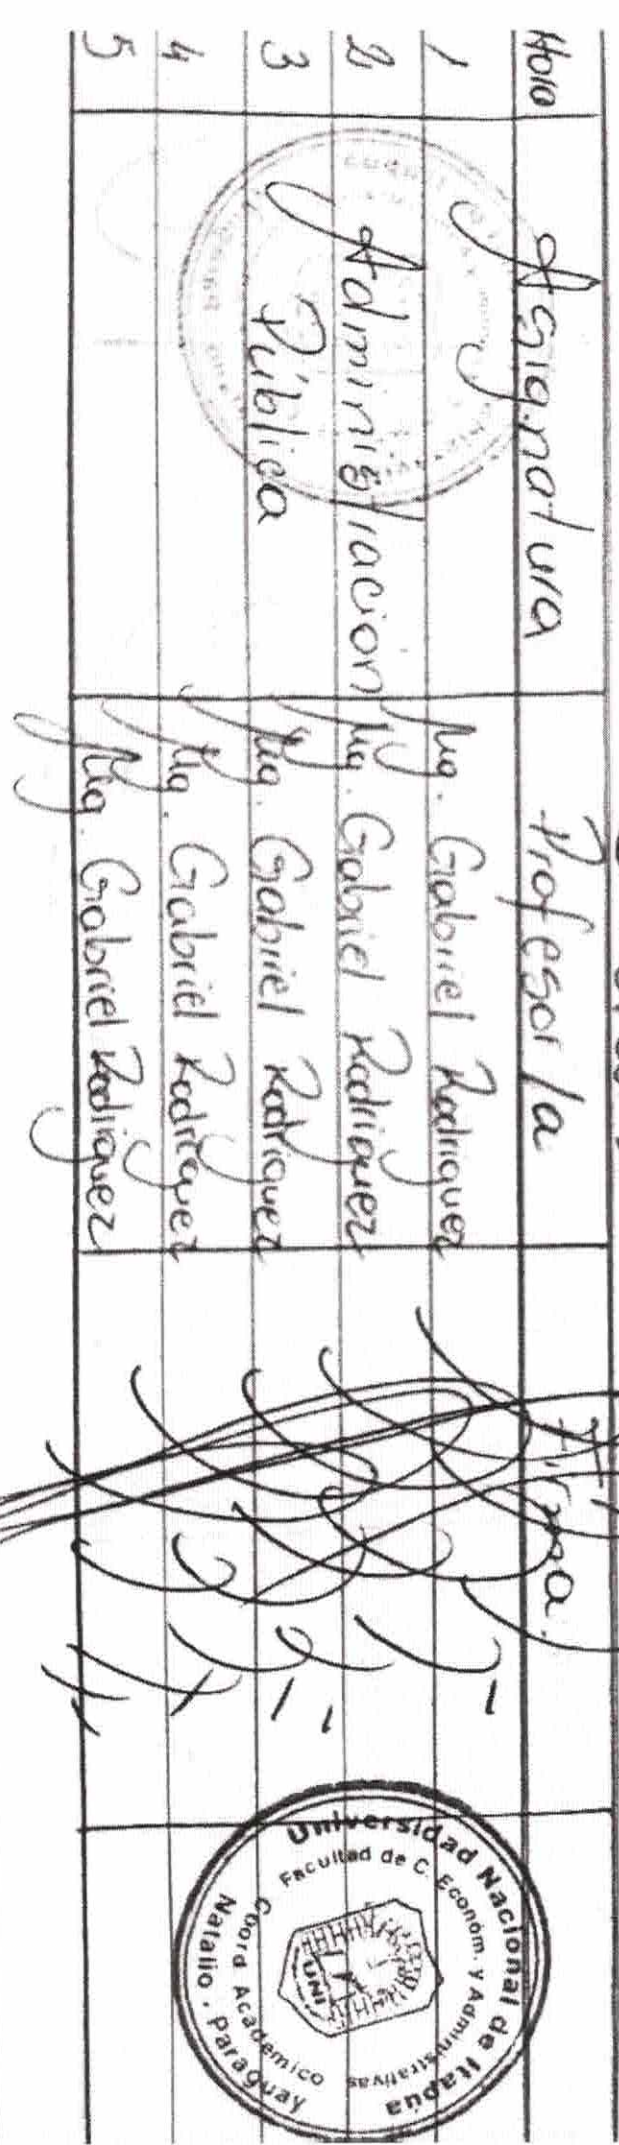 Hora Asignatura Profesor/a Firma.
1 Mg. Gabriel Rodriguez
2 Administracion Mg. Gabriel Rodriguez
3 Pública Mg. Gabriel Rodriguez
4 Mg. Gabriel Rodriguez
5 Mg. Gabriel Rodriguez
Universidad Nacional de Itapúa
Facultad de C. Económ. y Administrativas
UNI
Coord Academico
Natalio . Paraguay